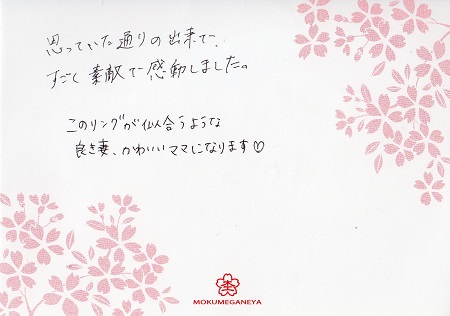 思っていた通りの出来で、
すごく素敵で感動しました。
このリングが似合うような
良き妻、かわいいママになります♡
MOKUMEGANEYA